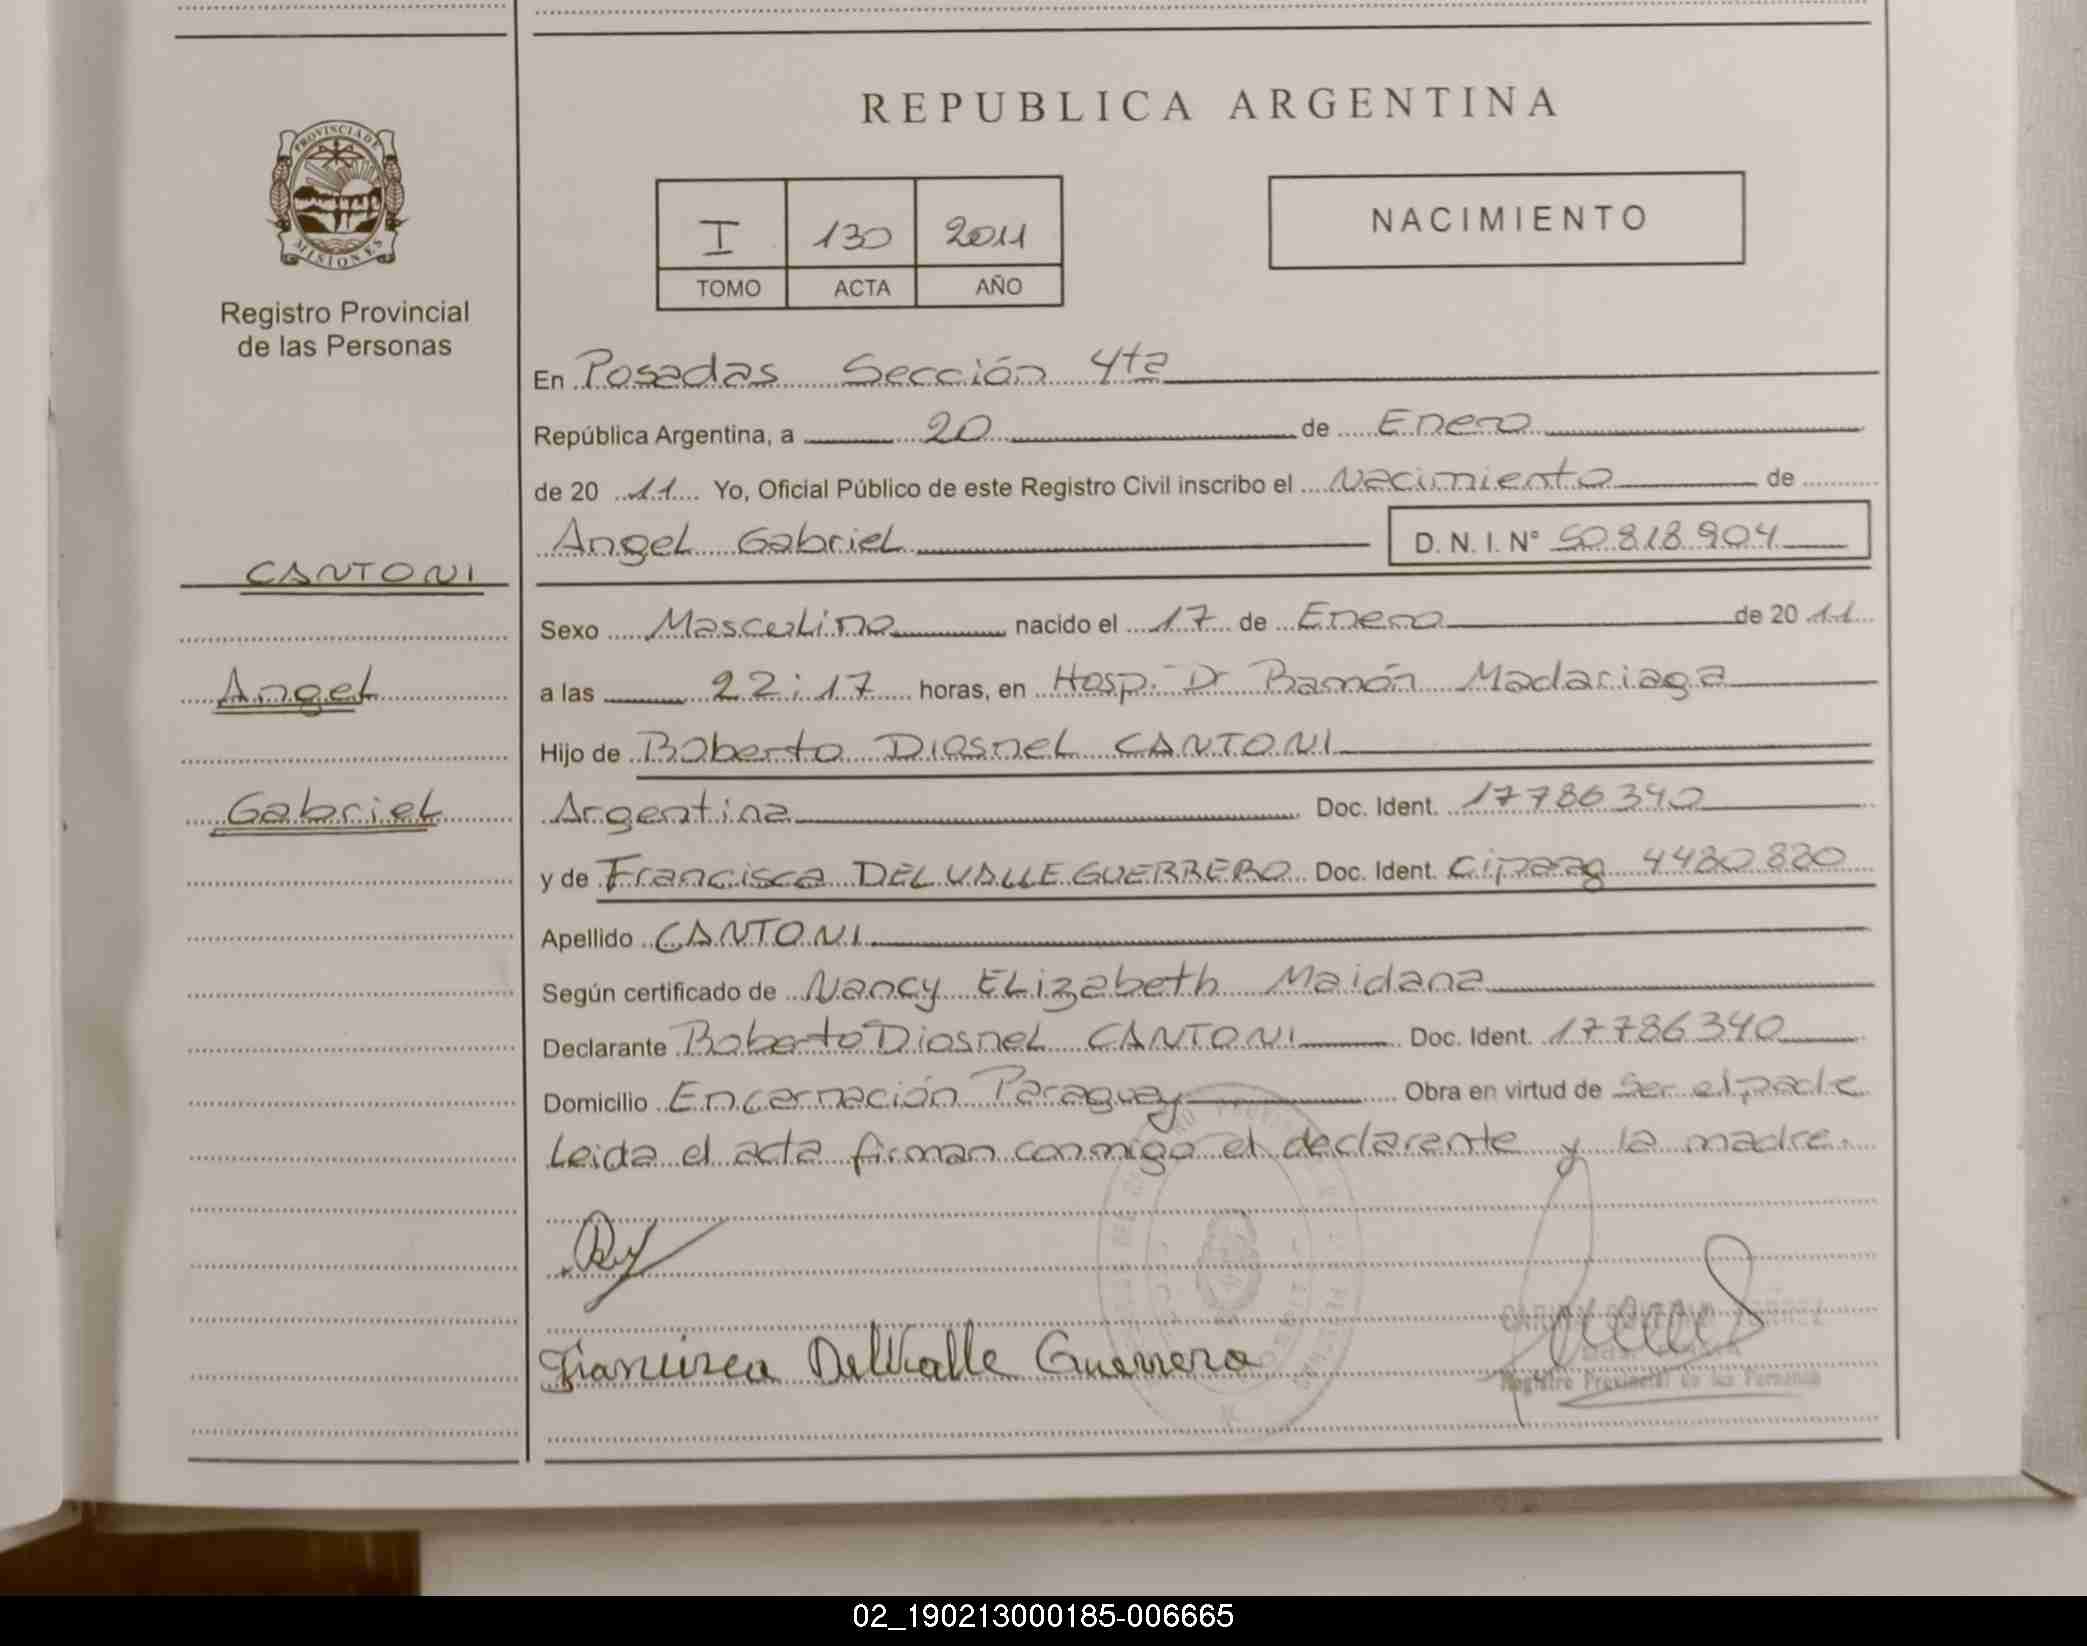 REPUBLICA ARGENTINA
PROVINCIA DE MISIONES
Registro Provincial
de las Personas
I 130 2011
TOMO ACTA AÑO
NACIMIENTO
En Posadas Sección 4ta
República Argentina, a 20 de Enero
de 20 11 Yo, Oficial Público de este Registro Civil inscribo el Nacimiento de
Angel Gabriel D. N. I. N° 50.818.904
CANTONI
Angel
Gabriel
Sexo Masculino nacido el 17 de Enero de 20 11
a las 22:17 horas, en Hosp. Dr Ramón Madariaga
Hijo de Roberto Diosnel CANTONI
Argentina Doc. Ident. 17786340
y de Francisca DEL VALLE GUERRERO Doc. Ident. Ci parag 4480880
Apellido CANTONI
Según certificado de Nancy Elizabeth Maidana
Declarante Roberto Diosnel CANTONI Doc. Ident. 17786340
Domicilio Encarnación Paraguay Obra en virtud de Ser el padre
Leida el acta firman conmigo el declarante y la madre.
Francisca Del Valle Guerrero
Registro Provincial de las Personas
02_190213000185-006665